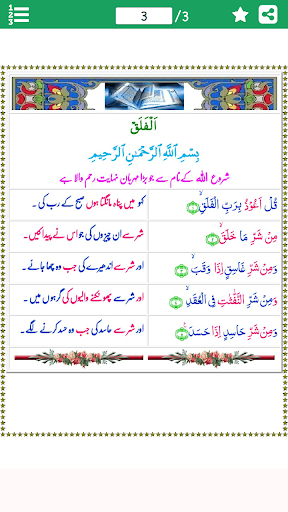 1
2
3
3 /3
اَلْفَلَق
بِسْمِ اللّٰهِ الرَّحْمٰنِ الرَّحِيْمِ
شروع اللہ کے نام سے جو بڑا مہربان نہایت رحم والا ہے
قُلْ اَعُوْذُ بِرَبِّ الْفَلَقِۙ ۱ کہو میں پناہ مانگتا ہوں صبح کے رب کی ۔
مِنْ شَرِّ مَا خَلَقَۙ ۲ شر سے ان چیزوں کی جو اس نے پیدا کیں۔
وَمِنْ شَرِّ غَاسِقٍ اِذَا وَقَبَۙ ۳ اور شر سے اندھیرے کی جب وہ چھا جائے۔
وَمِنْ شَرِّ النَّفّٰثٰتِ فِى الْعُقَدِۙ ۴ اور شر سے پھونکنے والیوں کی گرہوں میں ۔
وَمِنْ شَرِّ حَاسِدٍ اِذَا حَسَدَ ۵ اور شر سے حاسد کی جب وہ حسد کرنے لگے۔